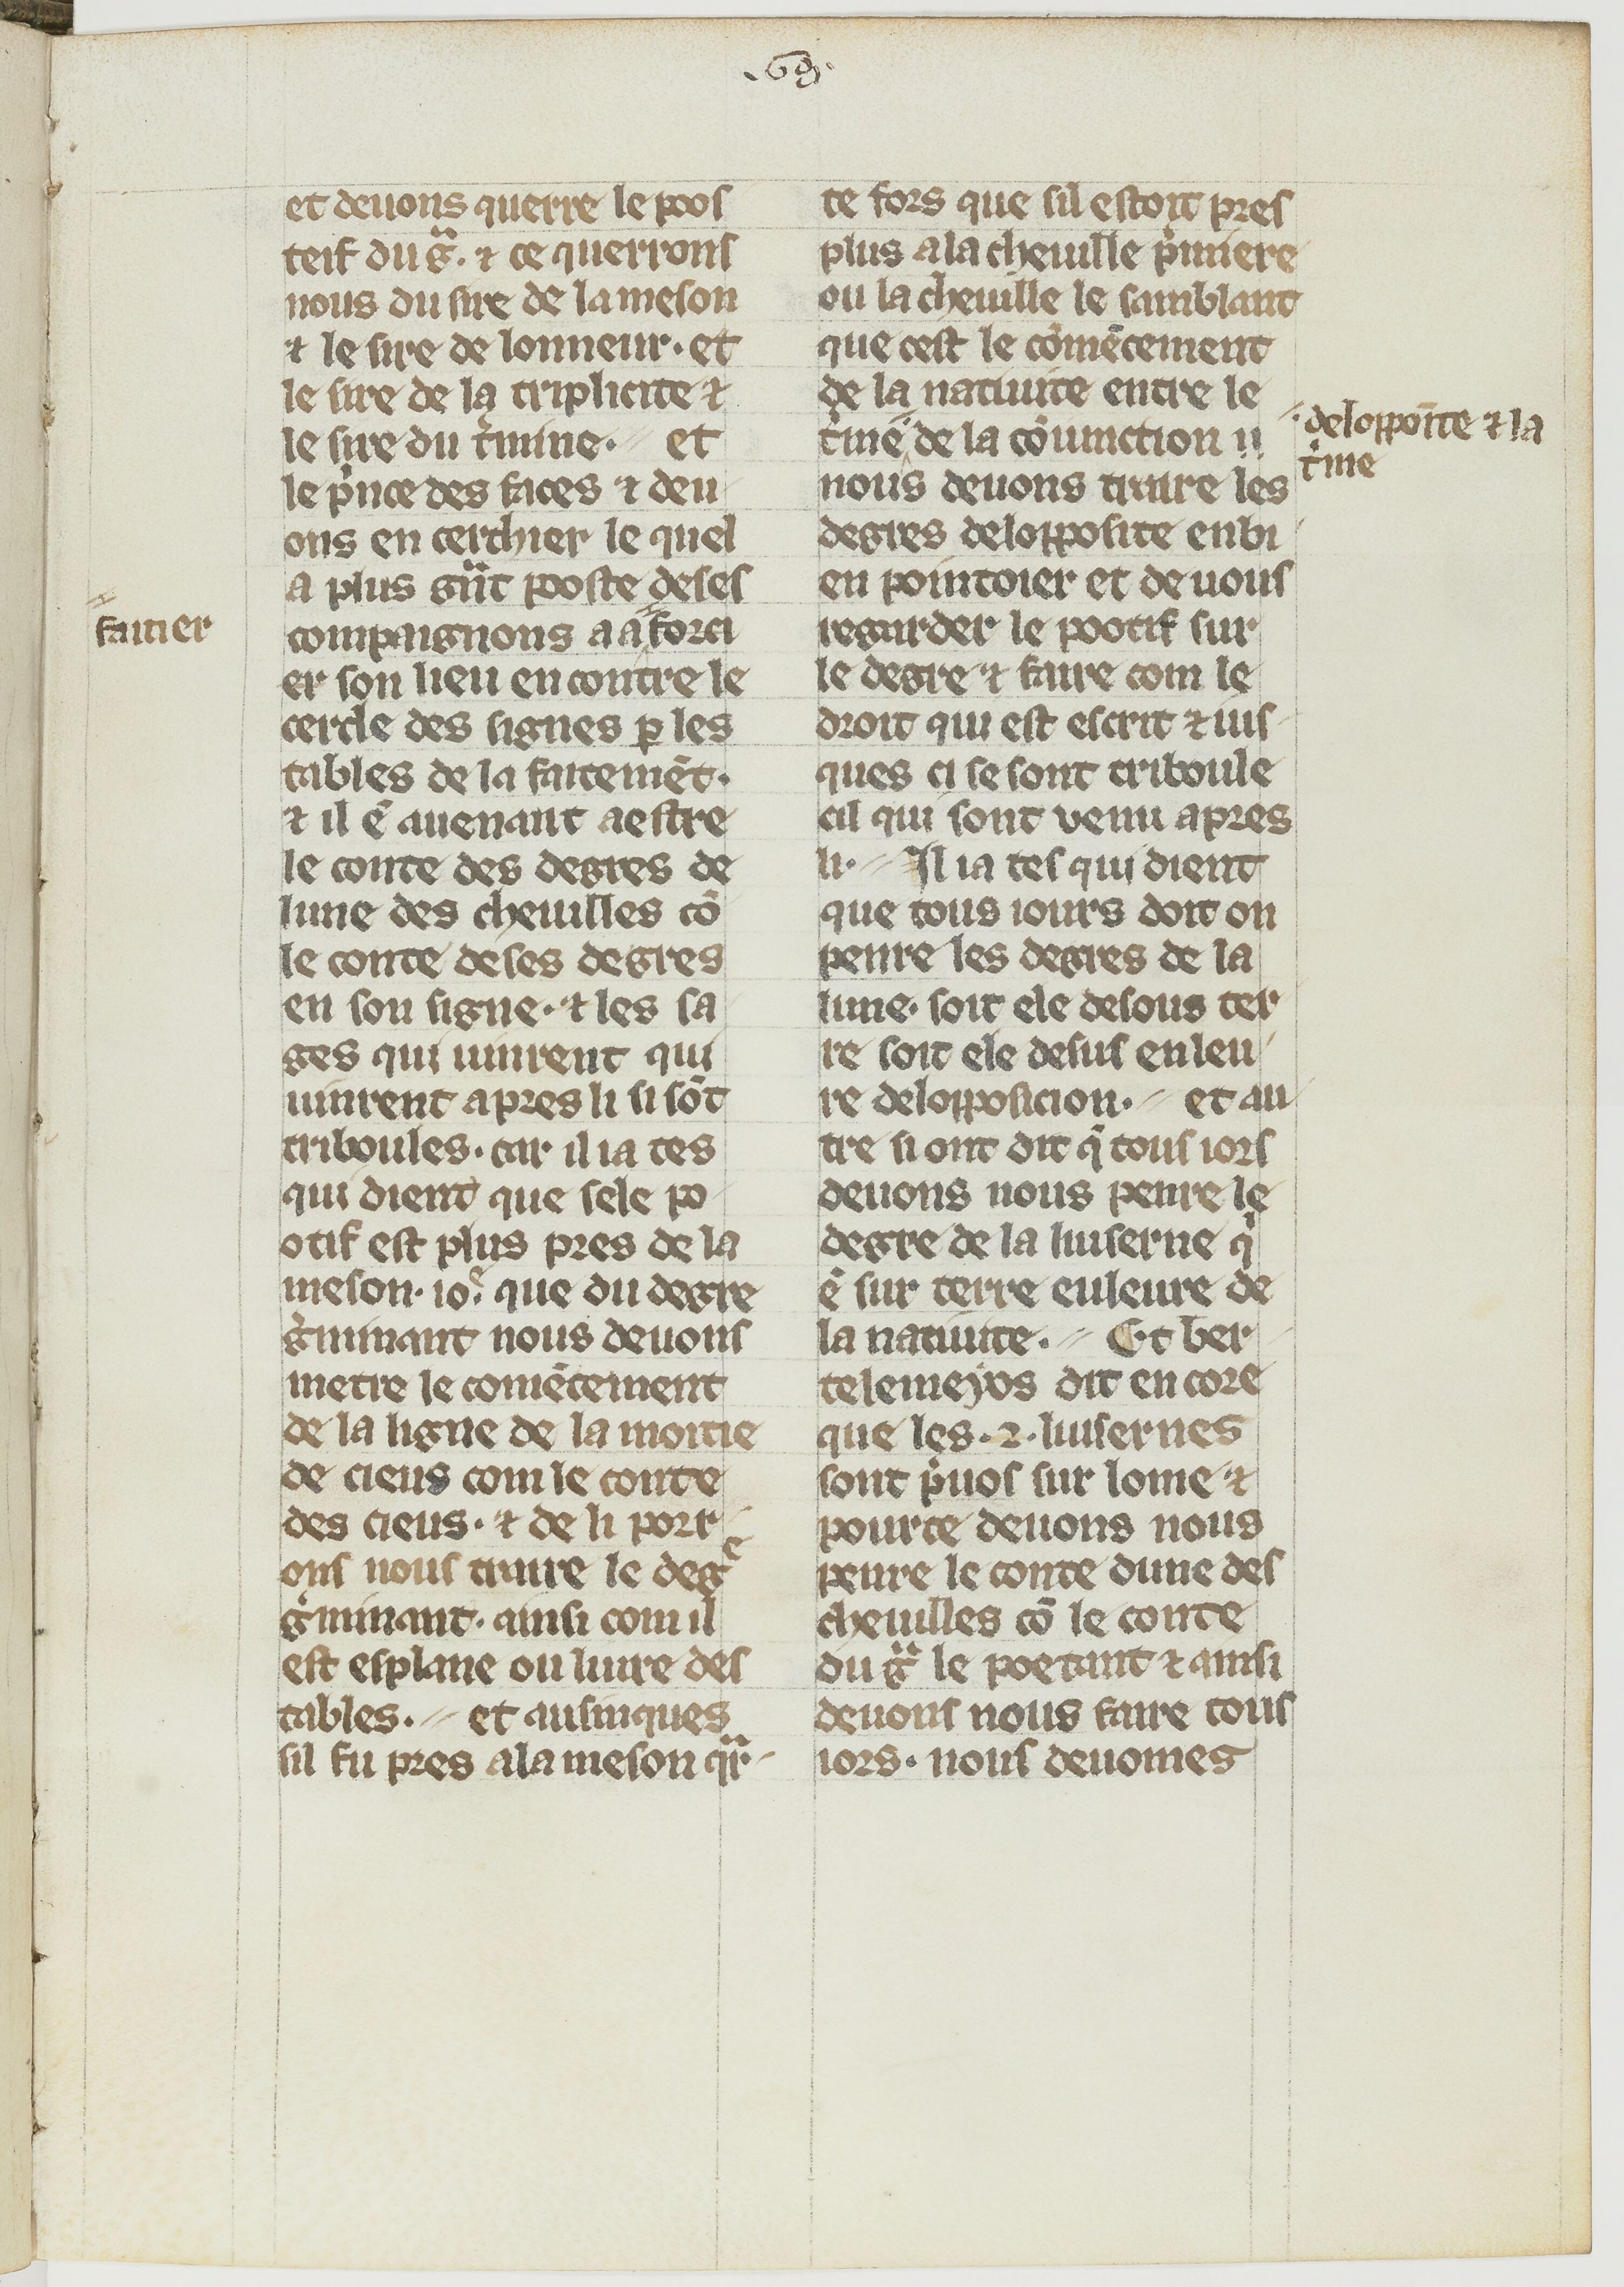 .69.
et deuons querre le poos
teif du gͣ. ⁊ ce querrons
nous du sire de la meson
⁊ le sire de lonneur. et
le sire de la triplicite ⁊
le sire du t'mine. et
le p'nce des faces ⁊ deu
ons en cerchier le quel
a plus gͣnt poste de ses
compaignons a a forci
er son lieu en contre le
cercle des signes ꝑ les
tables de la faitemēt.
⁊ il ē auenant a estre
le conte des degres de
lune des cheuilles cō
le conte de ses degres
en son signe. ⁊ les sa
ges qui uinrent qui
uinrent apres li si sōt
triboules. car il i a tes
qui dient que se le po
otif est plus pres de la
meson. 10ͤ. que du degre
g'minant nous deuons
metre le comēcement
de la ligne de la moitie
de cieus com le conte
des cieus. ⁊ de li porr
ons nous traire le degͤ
g'minant. ainsi com il
est esplane ou liure des
tables. et ausinques
sil fu pres a la meson qͣr
faitier
te fors que sil estoit pres
plus a la cheuille p'miere
ou la cheuille le samblant
que cest le cōmēcement
de la natiuite entre le
t'mē de la cōiunction ii
nous deuons traire les
degres de lopposite en bi
en pointoier et deuons
regarder le pootif sur
le degre ⁊ faire com le
droit qui est escrit ⁊ ius
ques ci se sont triboule
cil qui sont venu apres
li. Il i a tes qui dient
que tous iours doit on
penre les degres de la
lune. soit ele desous ter
re soit ele desus en leu
re de lopposicion. et au
tre si ont dit q̄ tous iors
deuons nous penre le
degre de la luiserne q'
ē sur terre en leure de
la natiuite. Et ber
telemeyos dit en core
que les .2. luisernes
sont p'uos sur lome ⁊
pour ce deuons nous
penre le conte dune des
cheuilles cō le conte
du gͣ le poetant ⁊ ainsi
deuons nous faire tous
iors. nous deuomes
de loppoīte ⁊ la
t'me